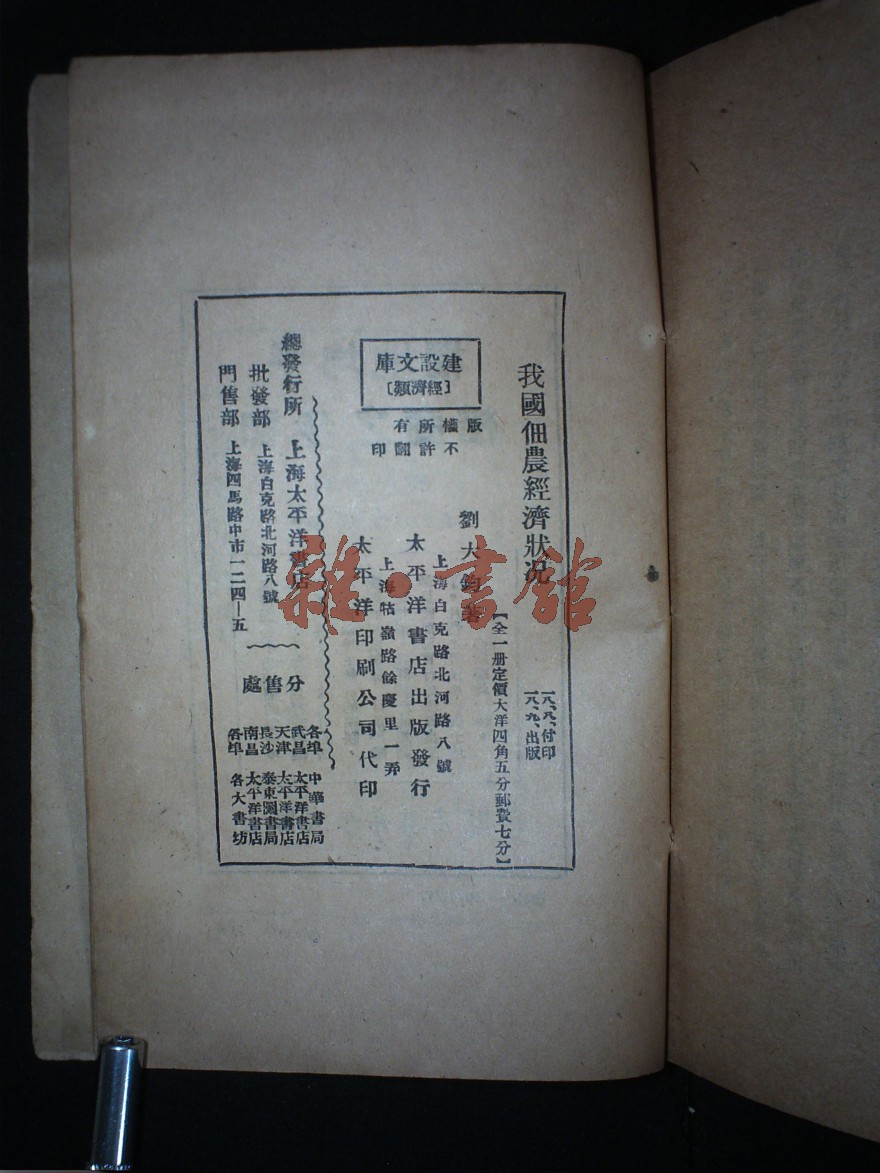 我國佃農經濟狀况
一八、八、付印
一八、九、出版
【全一册定價大洋四角五分郵費七分】
建設文庫
〔經濟類〕
版權所有
不許翻印
劉大鈞著
上海白克路北河路八號
太平洋書店出版發行
上海牯嶺路餘慶里一弄
太平洋印刷公司代印
總發行所 上海太平洋書店
批發部 上海白克路北河路八號
門售部 上海四馬路中市一二四—五
分售處
各埠 中華書局
武昌 太平洋書店
天津 太平洋書店
長沙 泰東圖書局
南昌 太平洋書店
各埠 各大書坊
雜·書館